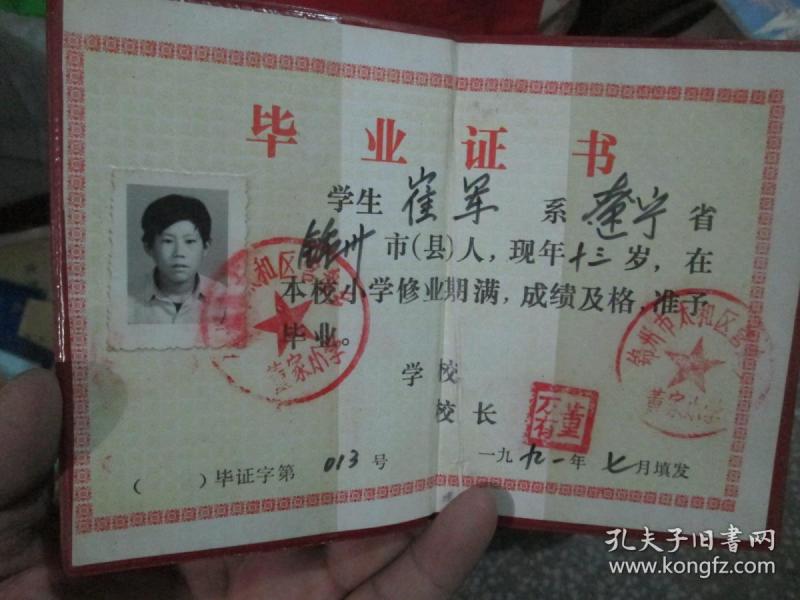 毕业证书
学生 崔军 系 辽宁 省
锦州 市(县)人，现年 十三 岁，在
本校小学修业期满，成绩及格，准予
毕业。
学校
校长
董万有
( )毕证字第 013 号
一九九一年七月填发
锦州市太和区
董家小学
和区
董家小学
孔夫子旧书网
www.kongfz.com